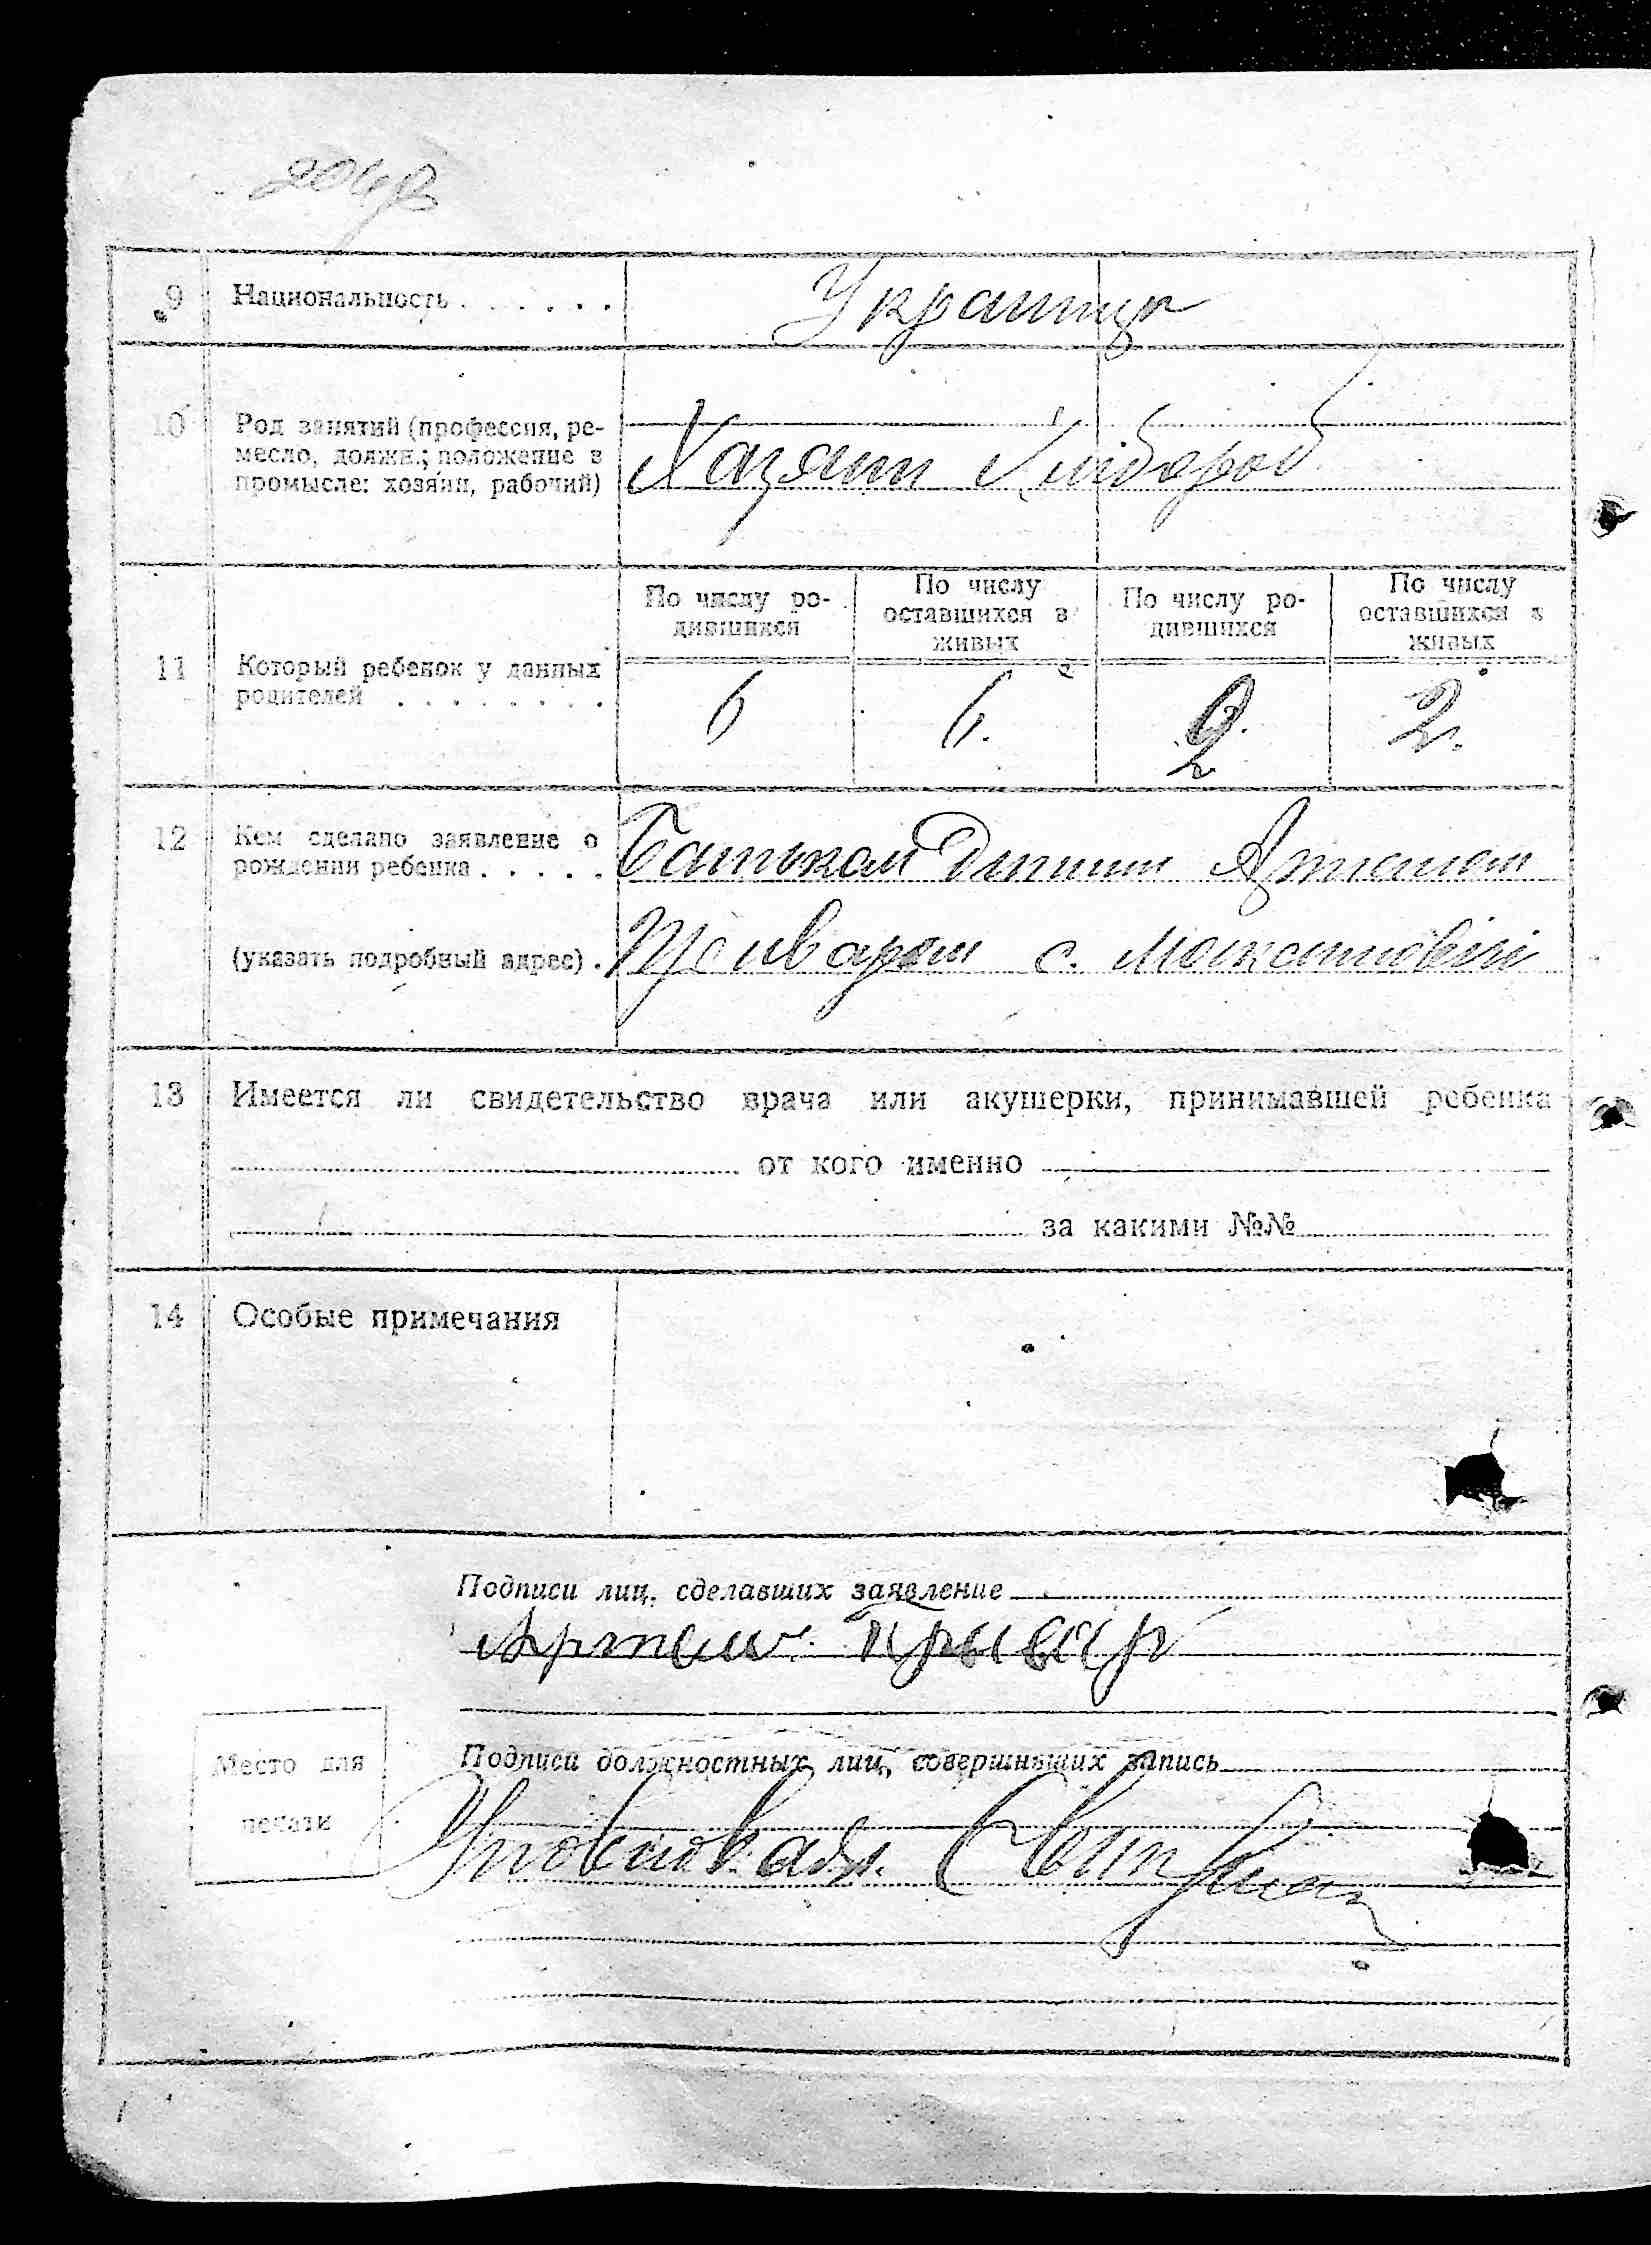 204
9 Национальность . . . . . . Українця
10 Род занятий (профессия, ре-
месло, должн.; положение в
промысле: хозяин, рабочий) Хазяин Хлібороб
По числу ро-
дившихся
По числу
оставшихся в
живых
По числу ро-
дившихся
По числу
оставшихся в
живых
11 Который ребенок у данных
родителей . . . . . . . .
6 6. 2 2.
12 Кем сделано заявление о
рождении ребенка . . . . . Батьком Дитини Артемом
(указать подробный адрес) . с.
13 Имеется ли свидетельство врача или акушерки, принимавшей ребенка
от кого именно
за какими №№
14 Особые примечания
Подписи лиц, сделавших заявление
Артем
Место для
печати
Подписи должностных лиц, совершивших запись